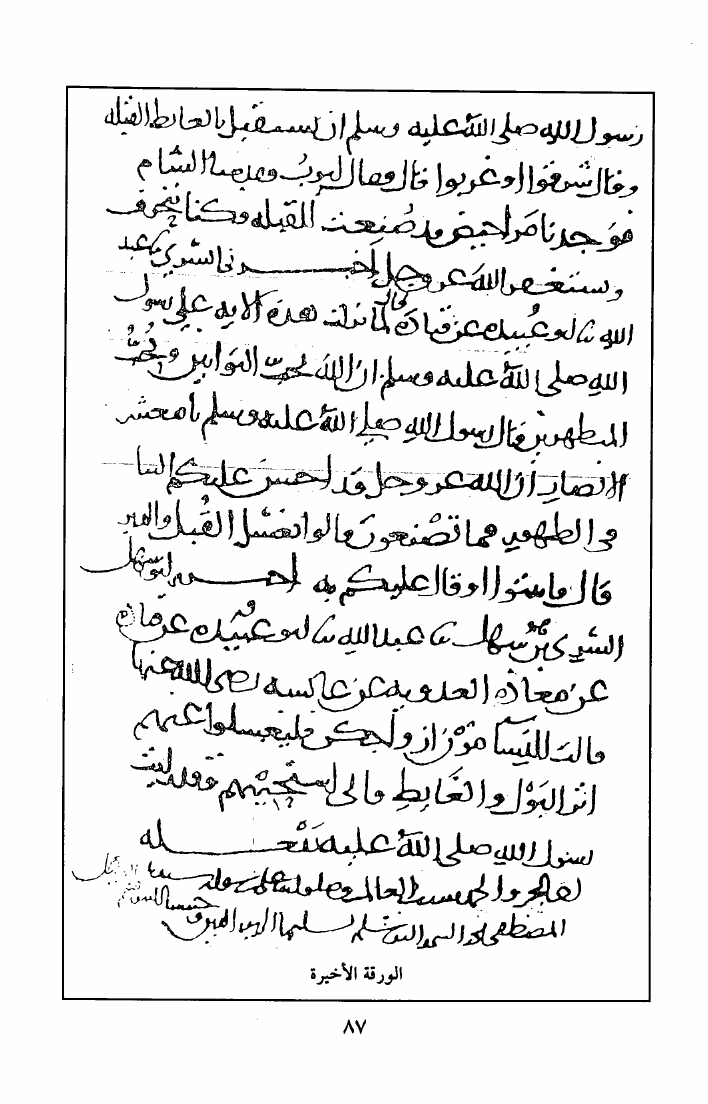 رسول الله صلى الله عليه وسلم ان نستقبل بالغائط القبلة
وقال شرقوا او غربوا قال وقال ابو ايوب وقدمنا الشام
فوجدنا مراحيض قد صنعت القبله وكنا ننحرف
ونستغفر الله عز وجل اخبرنى السري بن عبد
الله نا ابو عبيده عن قتاده قال لما نزلت هذه الايه على رسول
الله صلى الله عليه وسلم ان الله يحب التوابين ويحب
المتطهرين قال رسول الله صلى الله عليه وسلم يا معشر
الانصار ان الله عز وجل قد احسن عليكم الثنا
فى الطهور فما تصنعون قالوا نغسل القبل والدبر
قال ما سوا او قال عليكم به اخبرنا ابو سهل
السري بن سهل نا عبد الله نا ابو عبيده عن قتاده
عن معاذه العدويه عن عائشه رضى الله عنها
قالت للنسا مرن ازواجكن فليغسلوا عنهم
اثر البول والغائط فانى استحييهم وان
رسول الله صلى الله عليه يفعله
والحمد لله رب العالمين وصلواته على رسوله
المصطفى محمد النبى وسلم تسليما
الورقة الأخيرة
٨٧